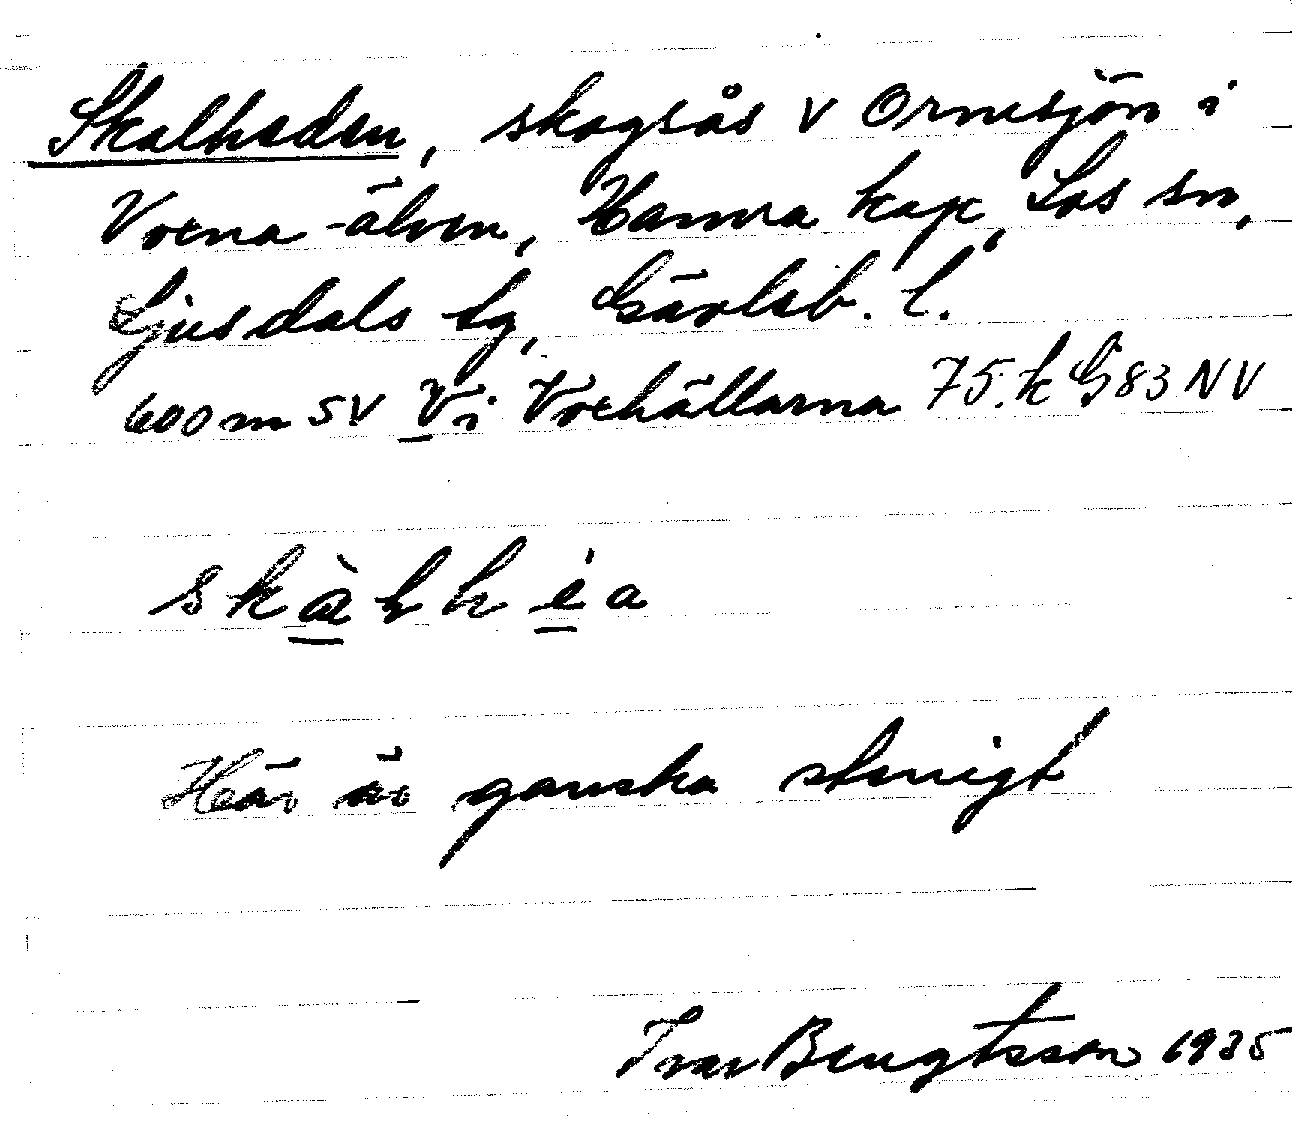 Skalheden, skogsås V Ornsjön i
Voxna älven, Hamra kap, Los sn,
Ljusdals tg, Gävleb. l.
600 m SV V i Voxhällarna 75. k G 83 NV
skàlhéa
Här är ganska stenigt
Ivar Bengtsson 1935